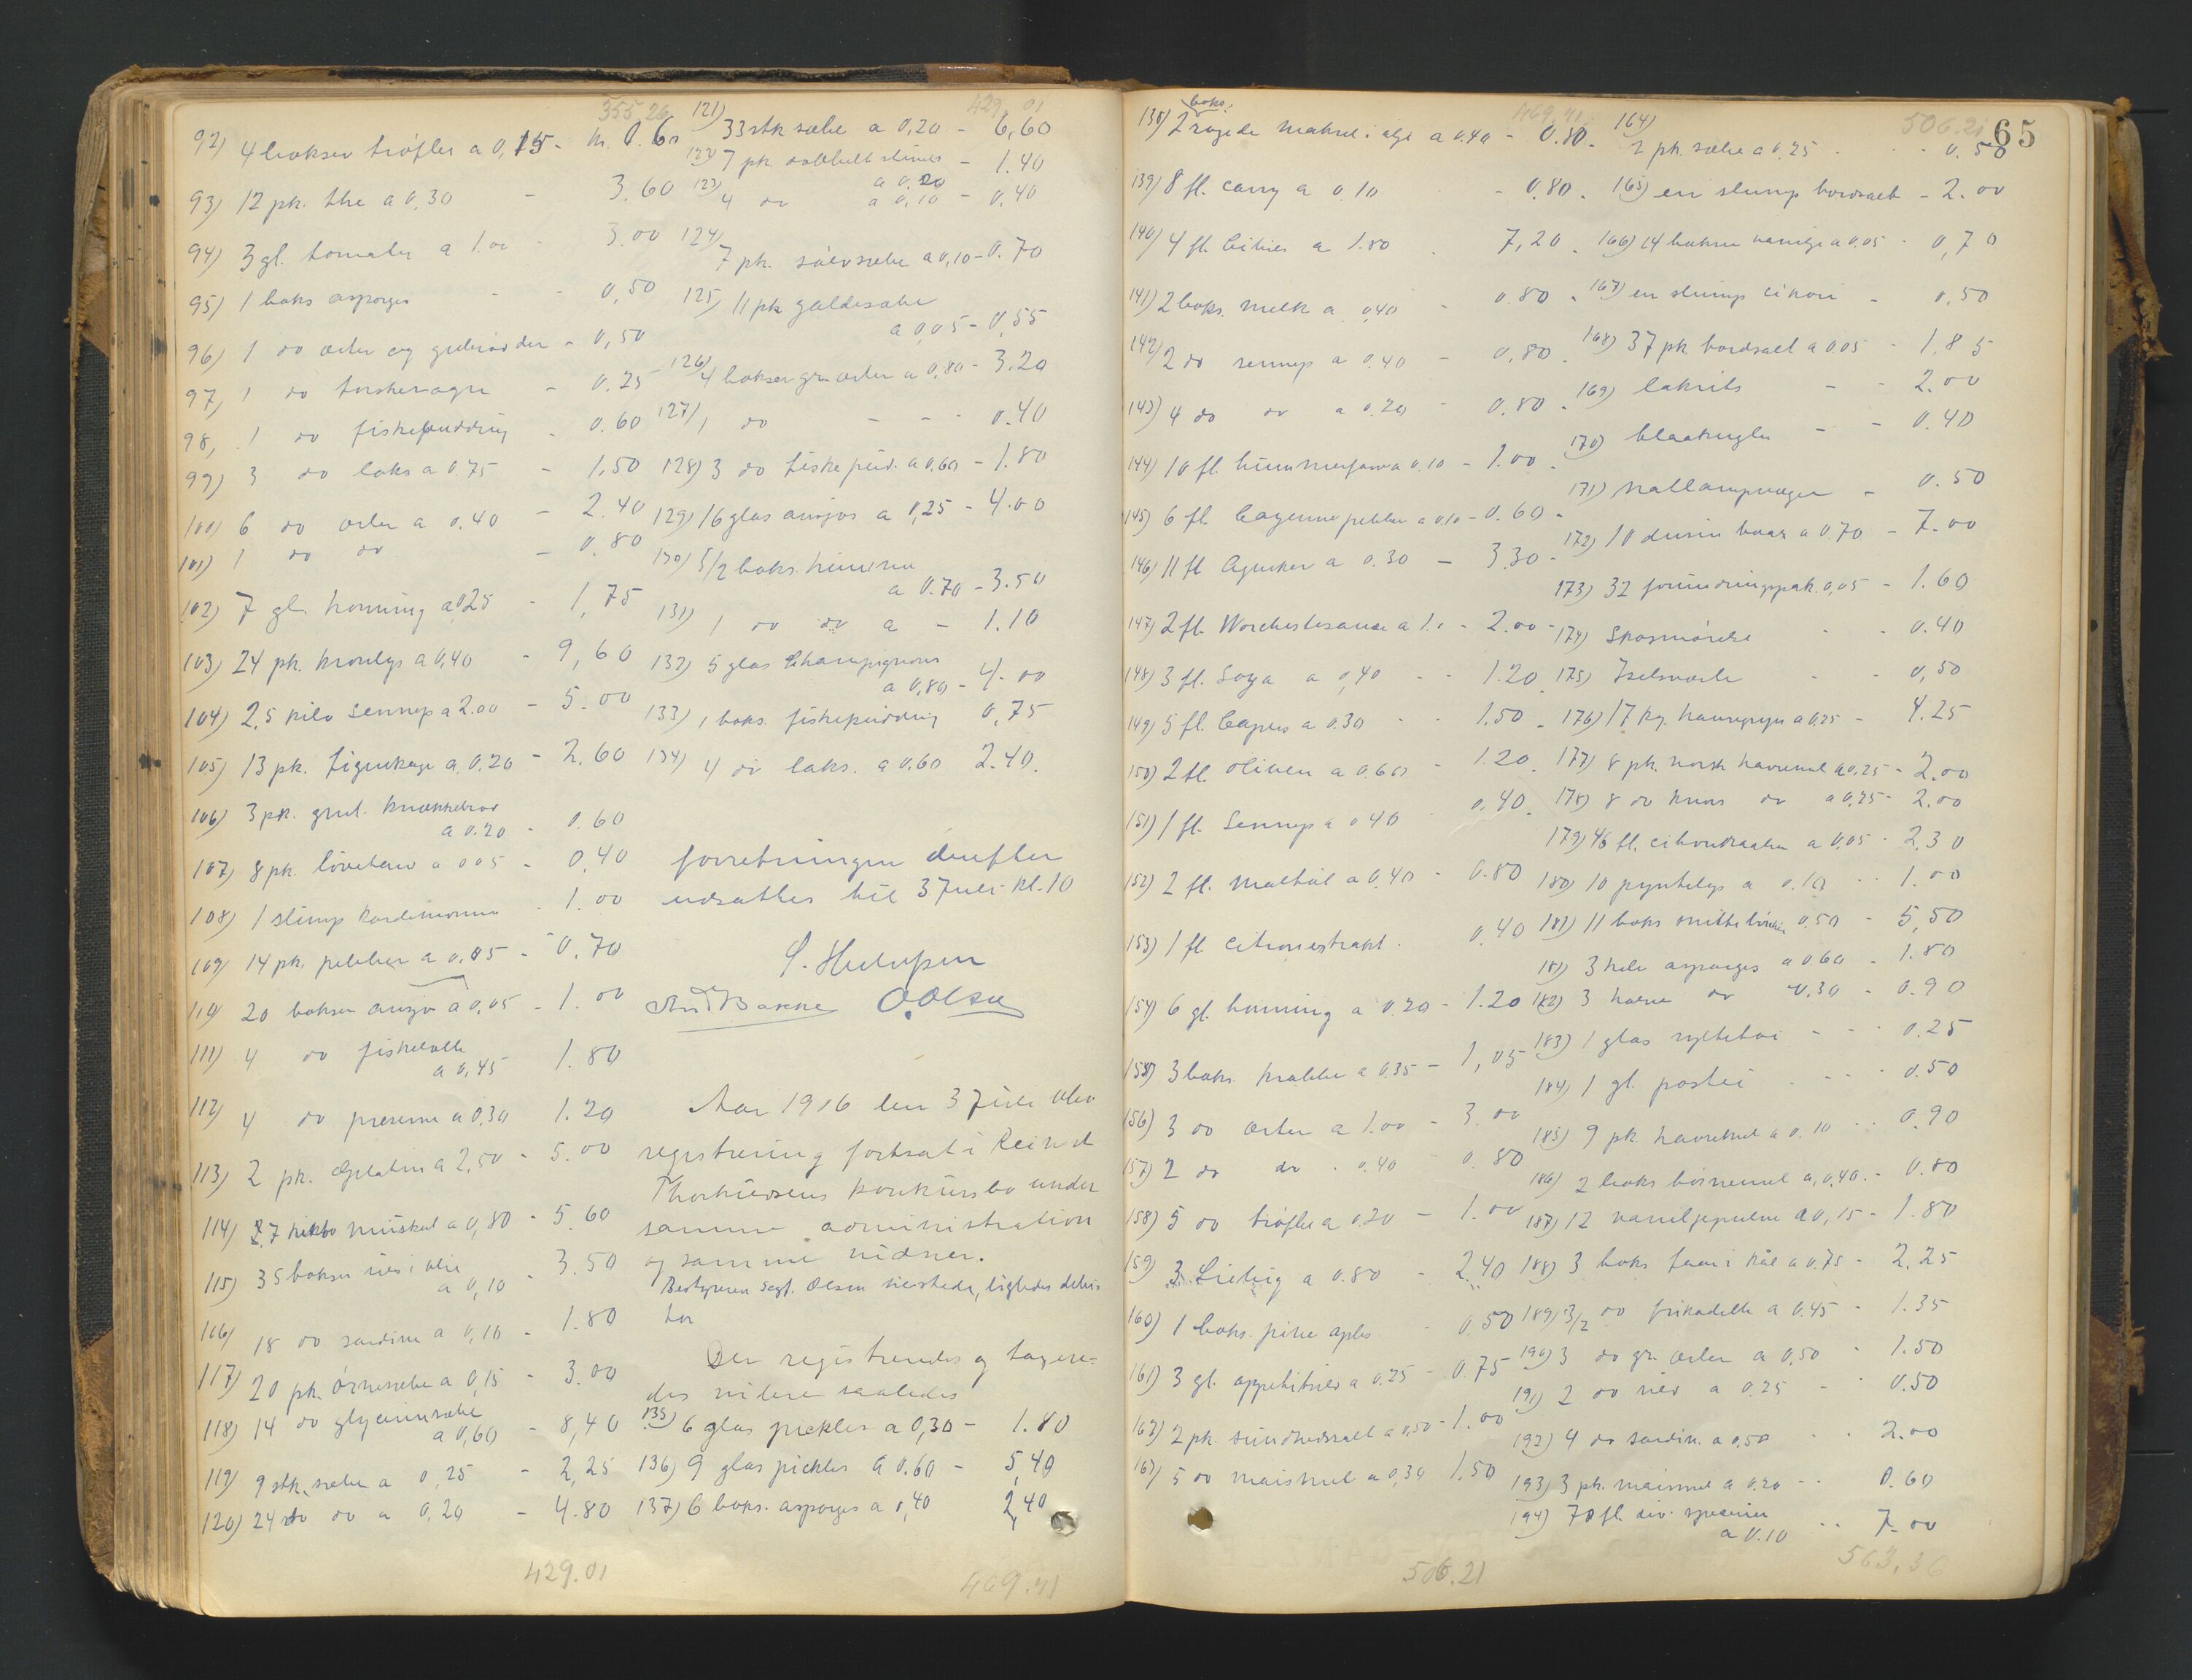 355.26
92) 4 bokser trøfler a 0,15 - kr. 0.60
93) 12 pk. the a 0,30 - 3.60
94) 3 gl. tomater a 1.00 - 3.00
95) 1 boks asparges - - 0,50
96) 1 do erter og gulerødder - 0,50
97) 1 do torskerogn - 0.25
98) 1 do fiskepudding - 0.60
99) 3 do laks a 0.75 - 1,50
100) 6 do erter a 0.40 - 2.40
101) 1 do do - 0.80
102) 7 gl. honning a 0,25 - 1,75
103) 24 pk. kronlys a 0,40 - 9,60
104) 2,5 kilo sennep a 2.00 - 5.00
105) 13 pk. figenkage a 0.20 - 2.60
106) 3 pk. grul. knækkebrød
a 0.20 - 0.60
107) 8 pk. løvetann a 0.05 - 0,40
108) 1 slump kardemomme - 1.00
109) 14 pk. pebber a 0.05 - 0.70
110) 20 bokser ansjos a 0,05 - 1.00
111) 4 do fiskeboller
a 0,45 1.80
112) 4 do prereme a 0.30 1.20
113) 2 pk. Gelatin a 2,50 - 5.00
114) 7 muskat a 0,80 - 5.60
115) 35 bokser sild i olie
a 0,10 - 3.50
116) 18 do sardiner a 0,10 - 1.80
117) 20 pk. ørnesæbe a 0,15 - 3.00
118) 14 do glycerinsæbe
a 0,60 - 8,40
119) 9 stk. sæbe a 0,25 - 2,25
120) 24 do do a 0,20 - 4.80
429.01
429.01
121) 33 stk sæbe a 0,20 - 6,60
122) 7 pk dobbelt stivels - 1.40
a 0.20
123) 4 do a 0,10 - 0,40
124) 7 pk. sølvsæbe a 0,10 - 0.70
125) 11 pk galdesæbe
a 0,05 - 0,55
126) 4 bokser grø. erter a 0,80 - 3.20
127) 1 do - - - 0.40
128) 3 do fiskepud. a 0,60 - 1.80
129) 16 glas ansjos a 0,25 - 4.00
130) 5/2 boks. hummer
a 0.70 - 3.50
131) 1 do do a - 1.10
132) 5 glas Champignons
a 0,80 - 4.00
133) 1 boks. fiskepudding 0,75
134) 4 do laks. a 0.60 2.40.
forretningen derefter
udsattes til 3 Juli kl. 10
And Bakke O. Olsen
Aar 1916 den 3 Juli blev
registrering fortsat i Reindt
Thorkildsens konkursbo under
samme administration
og samme vidner.
Bestyreren Sagf. Olsen tilstede, ligeledes debi-
tor
Der registreredes og taxere-
des videre saaledes
135) 6 glas pickles a 0,30 - 1.80
136) 9 glas pickles a 0.60 - 5,40
137) 6 boks. asparges a 0,40 2,40
469.41
65
469.41
138) 2 boks. røgede makrel i olje a 0.40 - 0.80.
139) 8 fl. carry a 0.10 - 0.80.
140) 4 fl. Cibils a 1.80 7,20.
141) 2 boks. melk a 0,40 - 0.80.
142) 2 do sennep a 0.40 - 0,80.
143) 4 do do a 0.20 - 0.80.
144) 10 fl. hummerfarve a 0.10 - 1.00.
145) 6 fl. Cayenne pebber a 0.10 - 0.60.
146) 11 fl Agurker a 0.30 - 3.30
147) 2 fl. Worchestersauce a 1.0 - 2.00
148) 3 fl. Soya a 0,40 - - 1.20
149) 5 fl. Capers a 0.30 - - 1.50
150) 2 fl. oliven a 0.60 - 1.20
151) 1 fl. Sennep a 0.40 - 0,40
152) 2 fl. maltøl a 0,40 - 0.80
153) 1 fl citronestrakt. 0,40
154) 6 gl. honning a 0.20 - 1.20
155) 3 boks. krabbe a 0.35 - 1,05
156) 3 do erter a 1.00 - 3.00
157) 2 do do - 0.40 0.80
158) 5 do trøfler a 0.20 - 1.00
159) 3 Liebig a 0.80 - 2.40
160) 1 boks. pine aples - 0.50
161) 3 gl. appetitsild a 0.25 - 0.75
162) 2 pk. sundhedssalt a 0,50 - 1.00
163) 5 do maismel a 0,30 1.50
506.21
506.21
164) 2 pk. sæbe a 0.25 - - 0.50
165) en slump bordsalt - 2.00
166) 14 bokser vanilje a 0.05 - 0,70
167) en slump cikori - 0,50
168) 37 pk bordsalt a 0.05 - 1.85
169) lakrits - - 2.00
170) blaakugler - - 0.40
171) natlampvæger - 0.50
172) 10 dusin baax a 0.70 - 7.00
173) 32 forundringspak. 0,05 - 1.60
174) Skosmørelse - - 0.40
175) Iselsværte - - 0,50
176) 17 kg. havregryn a 0.25 - 4.25
177) 8 pk. norsk havremel a 0.25 - 2.00
178) 8 do knors do a 0,25 - 2.00
179) 46 fl. citrondraaber a 0,05 - 2.30
180) 10 pyntelys a 0.10 - - 1.00
181) 11 boks snittebønner 0.50 - 5,50
181) 3 hele asparges a 0.60 - 1.80
182) 3 halve do 0.30 - 0.90
183) 1 glas syltetøi - - - 0.25
184) 1 gl. postei - - - 0.50
185) 9 pk. havremel a 0.10 - - 0.90
186) 2 boks børnemel a 0,40 - 0.80
187) 12 vaniljepulver a 0,15 - 1.80
188) 3 boks faar i kål a 0.75 - 2.25
189) 3/2 do frikadelle a 0.45 - 1.35
190) 3 do gr. erter a 0,50 - 1.50
191) 2 do sild a 0.25 - 0.50
192) 4 do sardin. a 0,50 - - 2.00
193) 3 pk. maismel a 0.20 - - 0.60
194) 70 fl. div. specerier
a 0.10 - - 7.00
563.36